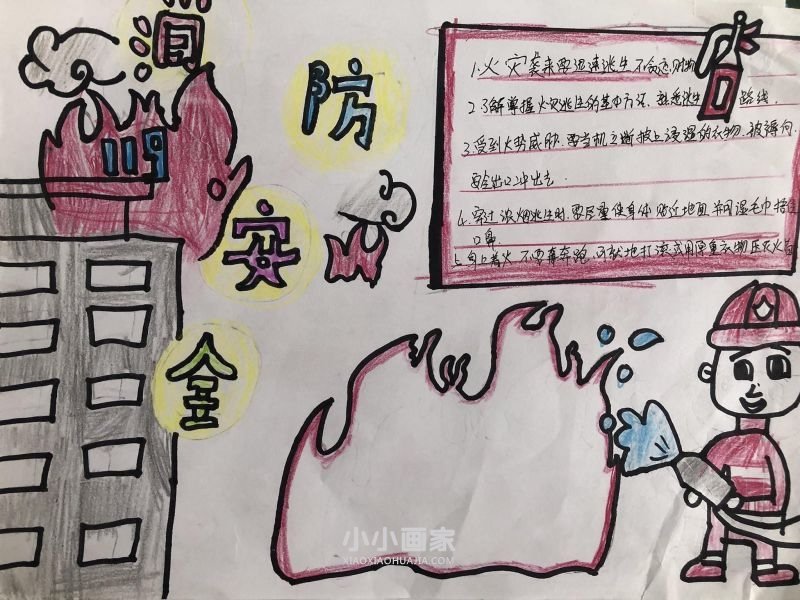 消
防
安
全
119
1.火灾袭来要迅速逃生不贪恋财物
2.了解掌握火灾逃生的基本方法,熟悉逃生路线.
3.受到火势威胁.要当机立断披上浸湿的衣物.被褥向
安全出口冲出去
4.穿过浓烟逃生时.要尽量使身体贴近地面并用湿毛巾捂住
口鼻
5.身上着火不要奔跑.可就地打滚或用厚重衣物压灭火苗
小小画家
XIAOXIAOHUAJIA.COM